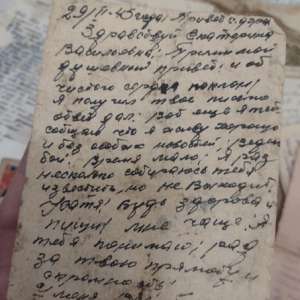 29/II-45 года; Привет с фрон
Здравствуй Екатерина
Васильевна; Прими мой
душевный привет; и об
чистого сердца поклон;
я получил твое письмо
ответ дал; Вот еще я тебе
сообщаю что я живу хорошо
и без особых новостей;
бои; Время мало; Я раз
несколько собираюсь тебя
навестить, но не выходит,
Катя; Будь здорова и
пиши мне чаще; Я
тебя понимаю; рад
за твою прямоту и
скромность;
У меня